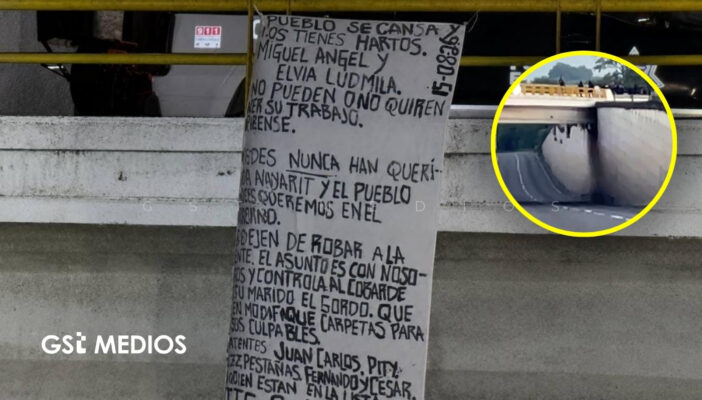 911
PUEBLO SE CANSA Y
LOS TIENES HARTOS.
MIGUEL ANGEL Y
ELVIA LUDMILA.
NO PUEDEN O NO QUIREN
ER SU TRABAJO.
RENSE.
EDES NUNCA HAN QUERI-
A NAYARIT Y EL PUEBLO
ES QUEREMOS EN EL
ERNO.
DEJEN DE ROBAR A LA
ENTE. EL ASUNTO ES CON NOSO-
OS Y CONTROLA AL COBARDE
TU MARIDO EL GORDO. QUE
EN MODIFIQUE CARPETAS PARA
SUS CULPABLES.
ATENTES JUAN CARLOS, PITY,
EZ, PESTAÑAS, FERNANDO Y CESAR.
IEN ESTAN EN LA LISTA
GSt MEDIOS